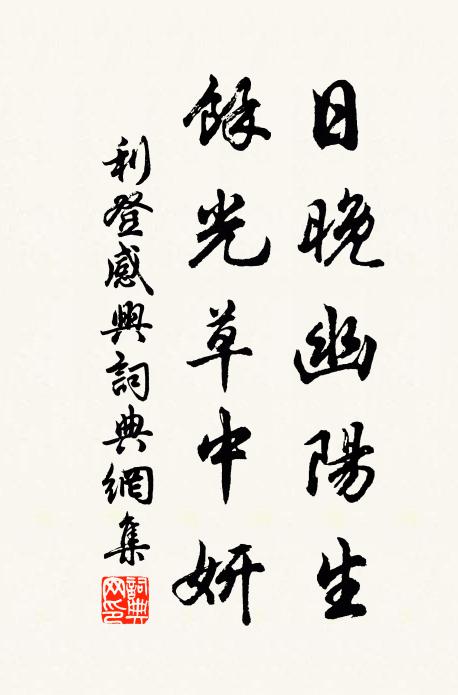 日晚幽陽生
餘光草中妍
利登感興詞典網集
詞典網印